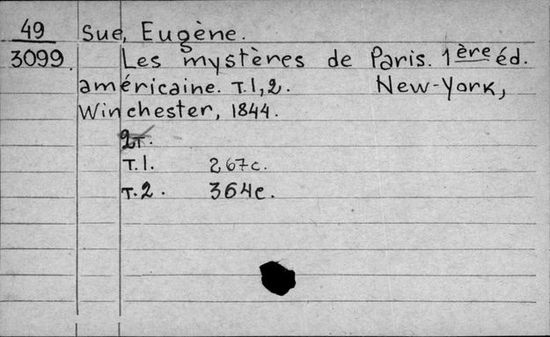 49 Sue, Eugène.
3099. Les mystères de Paris. 1ère éd.
américaine. T.1,2. New-York,
Winchester, 1844.
2т.
T.1. 267c.
T.2. 364c.